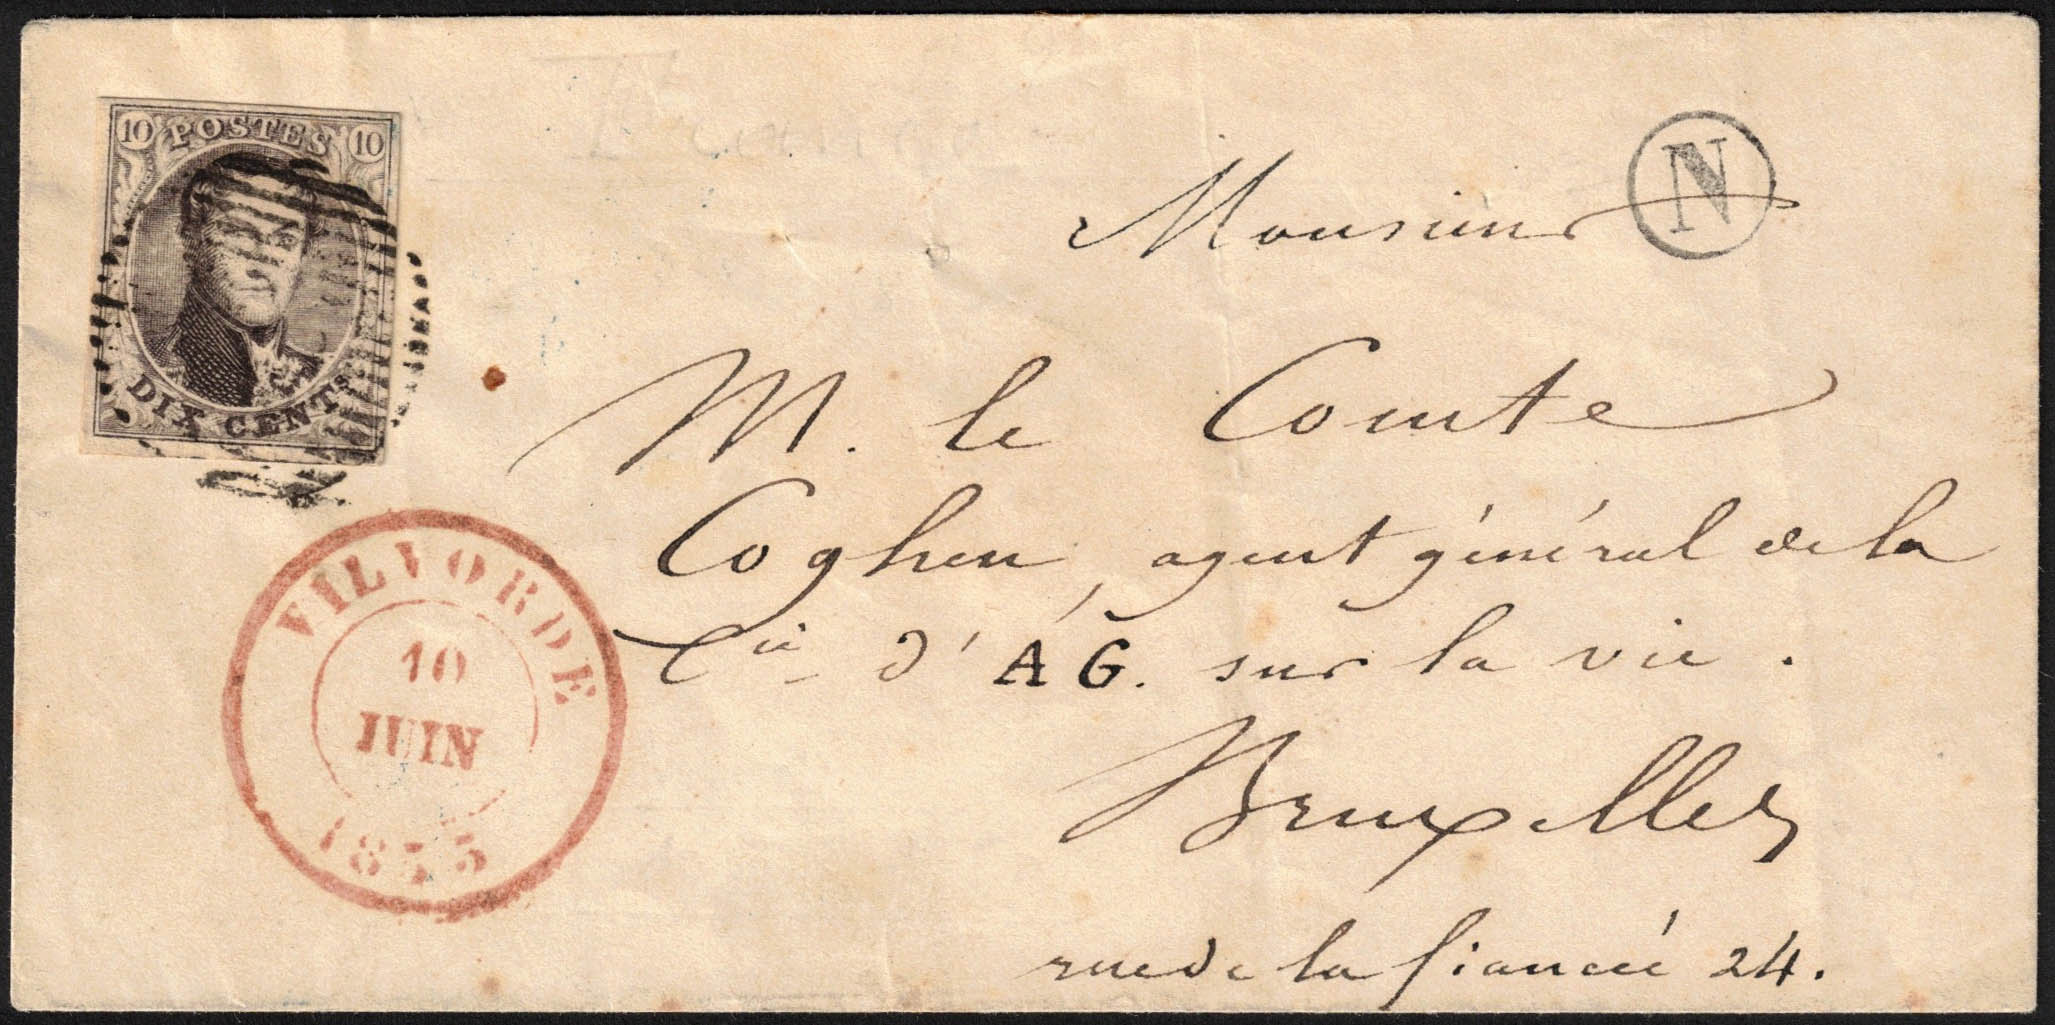 10 POSTES 10
DIX CENTS
N
Monsieur
M. le Comte
Coghen, agent général de la
Cie d'A G. sur la vie.
Bruxelles
rue de la fiancée 24.
VILVORDE
10
JUIN
1855